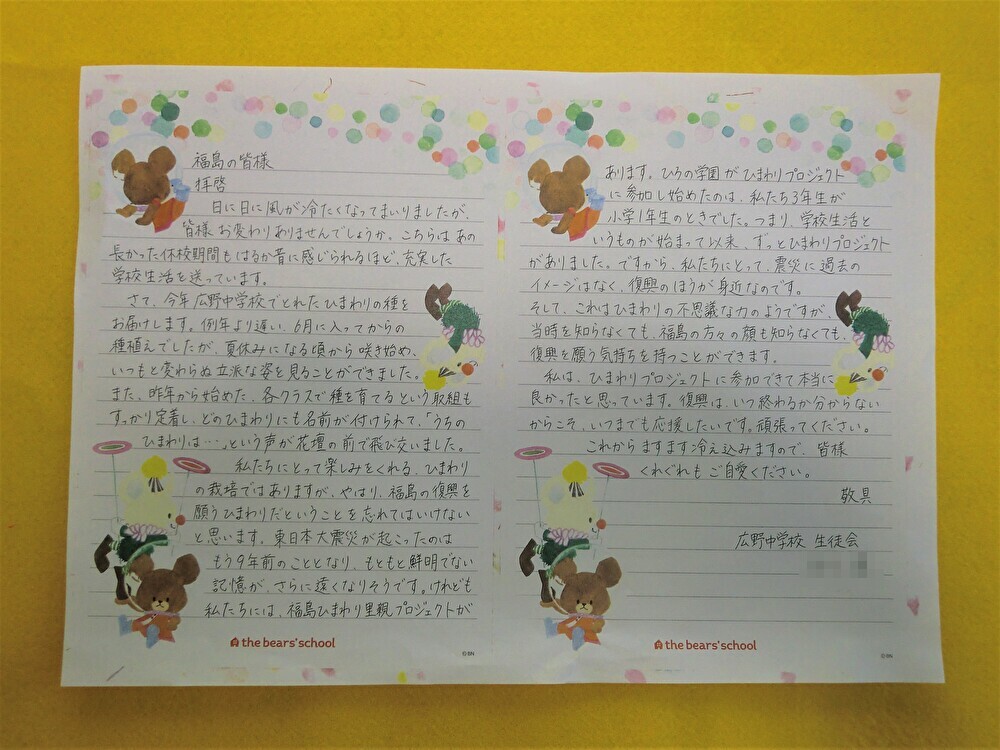 福島の皆様
拝啓
日に日に風が冷たくなってまいりましたが、
皆様お変わりありませんでしょうか。こちらはあの
長かった休校期間もはるか昔に感じられるほど、充実した
学校生活を送っています。
さて、今年広野中学校でとれたひまわりの種を
お届けします。例年より遅い、6月に入ってからの
種植えでしたが、夏休みになる頃から咲き始め、
いつもと変わらぬ立派な姿を見ることができました。
また、昨年から始めた、各クラスで種を育てるという取組も
すっかり定着し、どのひまわりにも名前が付けられて、「うちの
ひまわりは…」という声が花壇の前で飛び交いました。
私たちにとって楽しみをくれる、ひまわり
の栽培ではありますが、やはり、福島の復興を
願うひまわりだということを忘れてはいけない
と思います。東日本大震災が起こったのは
もう9年前のこととなり、もともと鮮明でない
記憶が、さらに遠くなりそうです。けれども
私たちには、福島ひまわり里親プロジェクトが
the bears' school
©BN
あります。ひろの学園がひまわりプロジェクト
に参加し始めたのは、私たち3年生が
小学1年生のときでした。つまり、学校生活と
いうものが始まって以来、ずっとひまわりプロジェクト
がありました。ですから、私たちにとって、震災に過去の
イメージはなく、復興のほうが身近なのです。
そして、これはひまわりの不思議な力のようですが、
当時を知らなくても、福島の方々の顔も知らなくても、
復興を願う気持ちを持つことができます。
私は、ひまわりプロジェクトに参加できて本当に
良かったと思っています。復興は、いつ終わるか分からない
からこそ、いつまでも応援したいです。頑張ってください。
これからますます冷え込みますので、皆様
くれぐれもご自愛ください。
敬具
広野中学校 生徒会
the bears' school
©BN